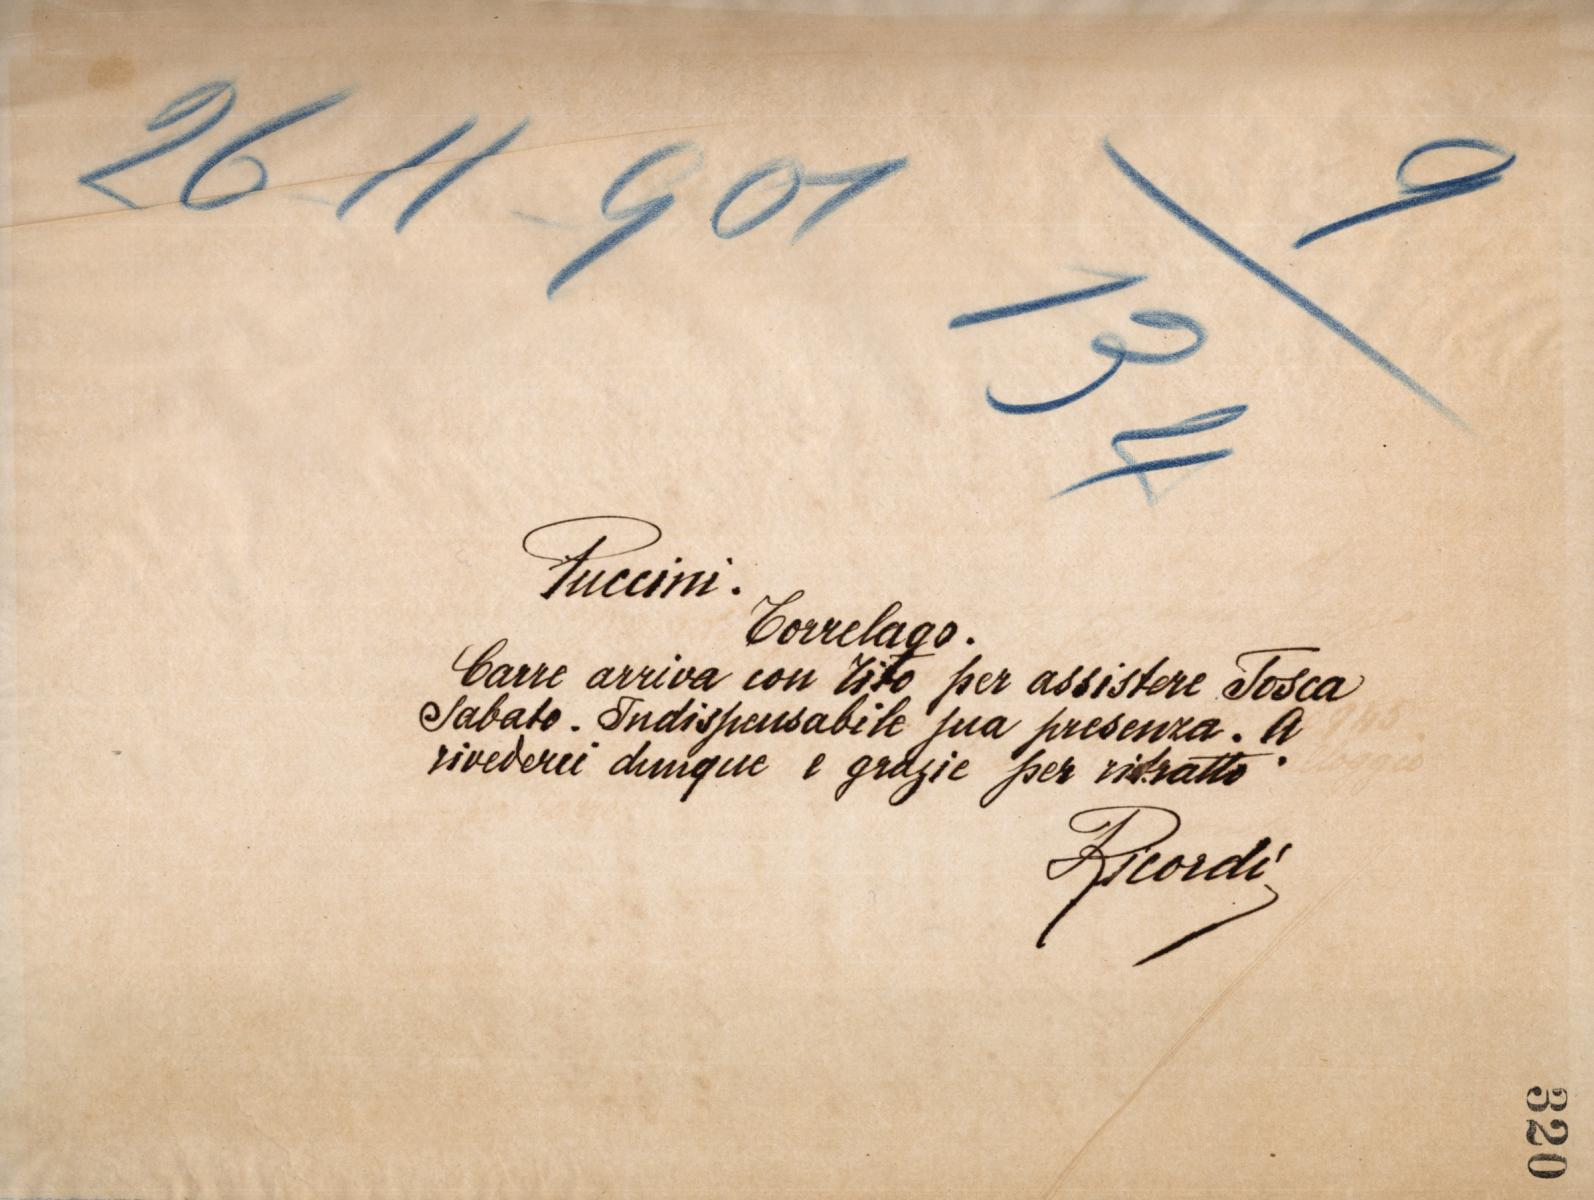 26-11-901
9
13
Puccini.
Torrelago.
Carre arriva con Tito per assistere Tosca
Sabato. Indispensabile sua presenza. A
rivederci dunque e grazie per ritratto.
Ricordi
320